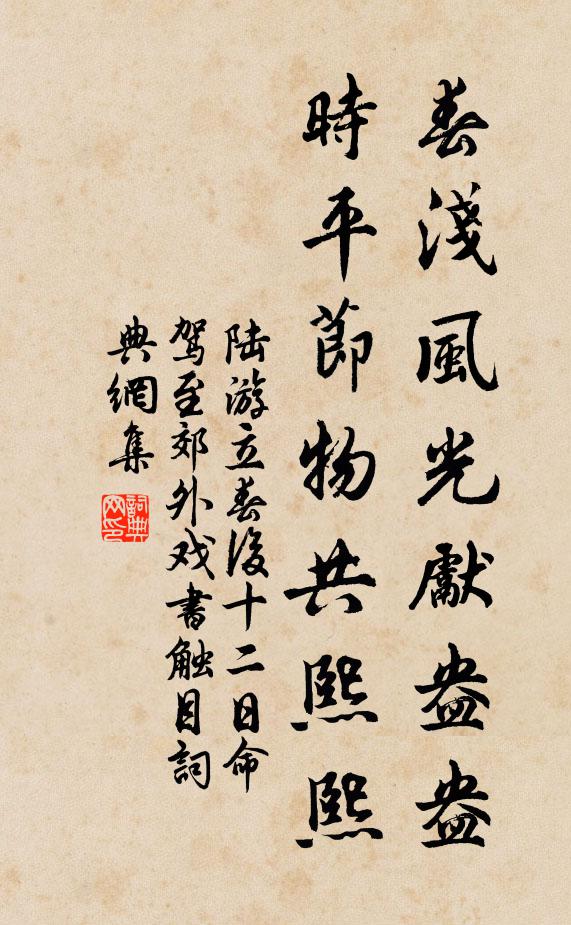 春淺風光獻盎盎
時平節物共熙熙
陆游立春後十二日命
驾至郊外戏書触目詞
典網集
詞典网印